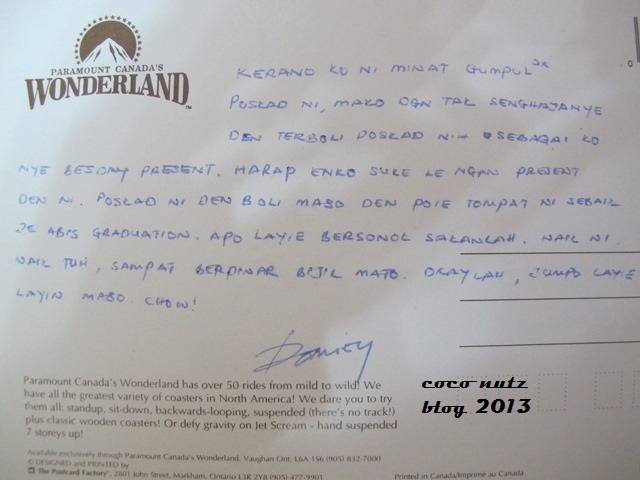 PARAMOUNT CANADA'S
WONDERLAND™
KERANO KO NI MINAT GUMPUL
POSKAD NI, MAKO DGN TAK SENGHAJANYE
DEN TERBOLI POSKAD NIH SEBAGAI KO
NYE BESDAY PRESENT. HARAP ENKO SUKE LE NGAN PRESENT
DEN NI. POSKAD NI DEN BOLI MASO DEN POIE TOMPAT NI SEBAIK
JE ABIS GRADUATION. APO LAYIE BERSONOL SAKANLAH. NAIK NI.
NAIK TUH, SAMPAI BERPINAR BIJIL MATO. OKAYLAH, JUMPO LAYIE
LAYIN MASO. CHOW!
Paramount Canada's Wonderland has over 50 rides from mild to wild! We
have all the greatest variety of coasters in North America! We dare you to try
them all: standup, sit-down, backwards-looping, suspended (there's no track!)
plus classic wooden coasters! Or defy gravity on Jet Scream - hand suspended
7 storeys up!
coco nutz
blog 2013
Available exclusively through Paramount Canada's Wonderland, Vaughan Ont. L6A 1S6 (905) 832-7000
© DESIGNED and PRINTED by
The Postcard Factory®, 2801 John Street, Markham, Ontario L3R 2Y8 (905) 477-9901
Printed in Canada/Imprimé au Canada